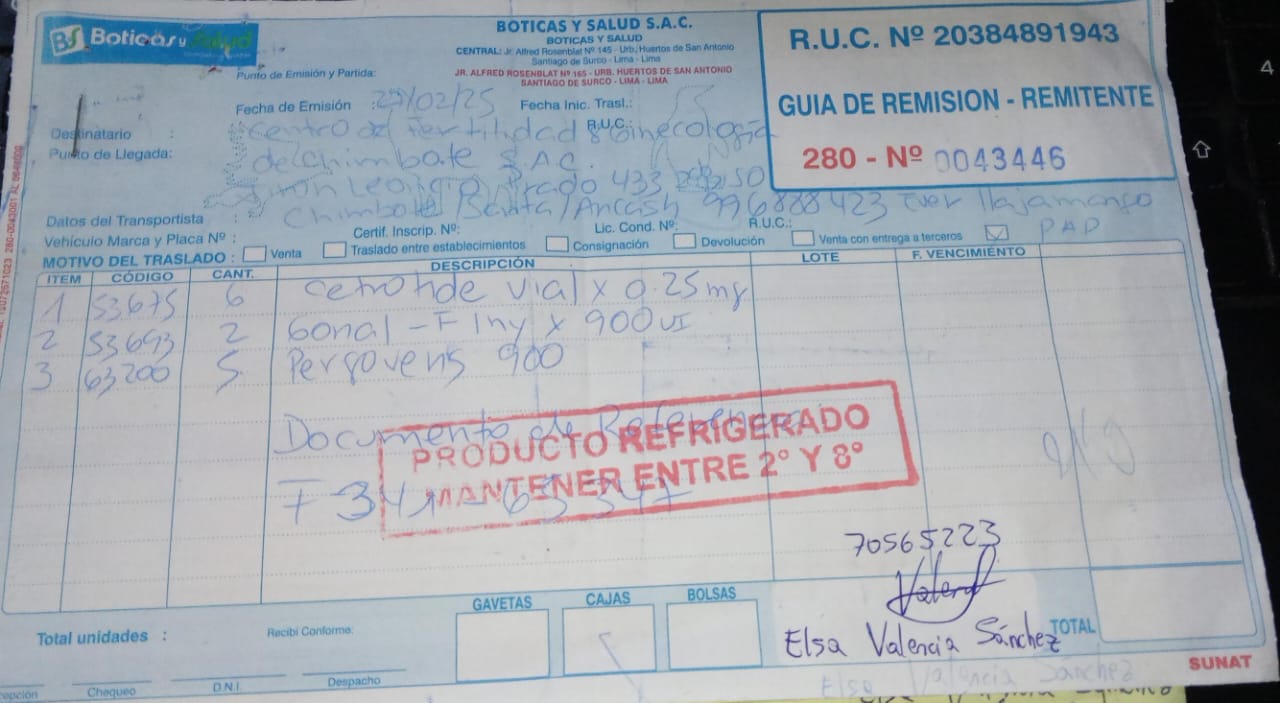 BS Boticas y Salud
BOTICAS Y SALUD S.A.C.
BOTICAS Y SALUD
CENTRAL: Jr. Alfred Rosenblat Nº 145 - Urb. Huertos de San Antonio
Santiago de Surco - Lima - Lima
Punto de Emisión y Partida: JR. ALFRED ROSENBLAT Nº 165 - URB. HUERTOS DE SAN ANTONIO
SANTIAGO DE SURCO - LIMA - LIMA
R.U.C. Nº 20384891943
GUIA DE REMISION - REMITENTE
280 - Nº 0043446
Fecha de Emisión : 27/02/25 Fecha Inic. Trasl.:
Destinatario : Centro de Fertilidad & Ginecología R.U.C.:
Punto de Llegada: del Chimbote S.A.C.
Prado 433
Chimbote / Santa / Ancash 996888423 Ever
Datos del Transportista :
Vehículo Marca y Placa Nº : Certif. Inscrip. Nº: Lic. Cond. Nº: R.U.C.: PAD
MOTIVO DEL TRASLADO : Venta Traslado entre establecimientos Consignación Devolución Venta con entrega a terceros
ITEM CÓDIGO CANT. DESCRIPCIÓN LOTE F. VENCIMIENTO
1 53675 6 Cetrotide vial x 0.25 mg
2 53693 2 Gonal-F Iny x 900 UI
3 63200 5 Pergoveris 900
Documento de Referencia
PRODUCTO REFRIGERADO
MANTENER ENTRE 2° Y 8°
70565223
Elsa Valencia Sánchez
GAVETAS CAJAS BOLSAS
Total unidades : Recibí Conforme: TOTAL
Chequeo D.N.I. Despacho
SUNAT
Elsa Valencia Sánchez